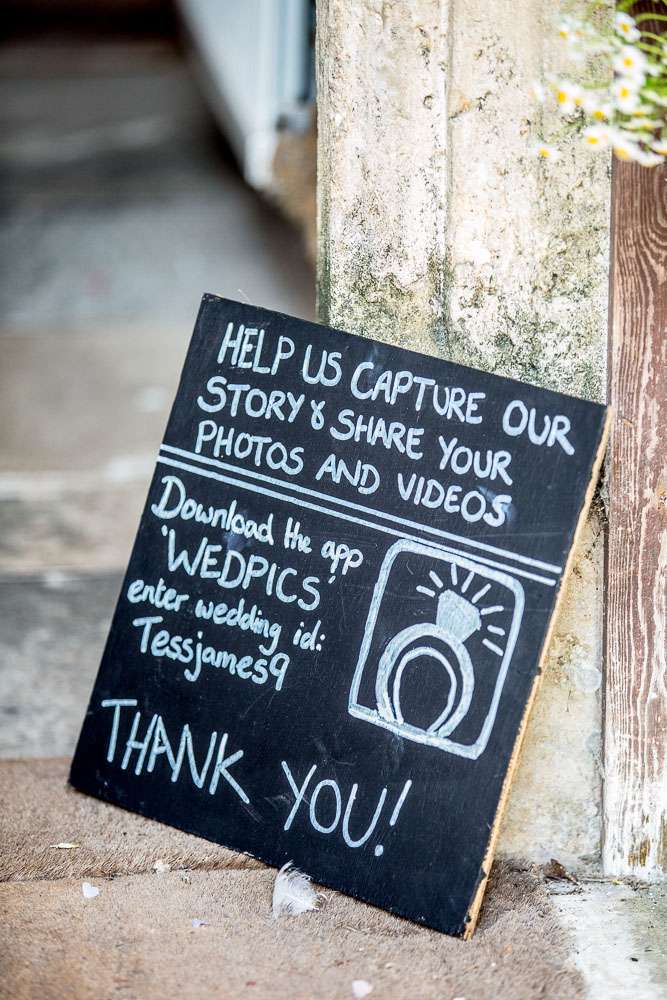 HELP US CAPTURE OUR
STORY & SHARE YOUR
PHOTOS AND VIDEOS
Download the app
'WEDPICS'
enter wedding id:
Tessjames9
THANK YOU!